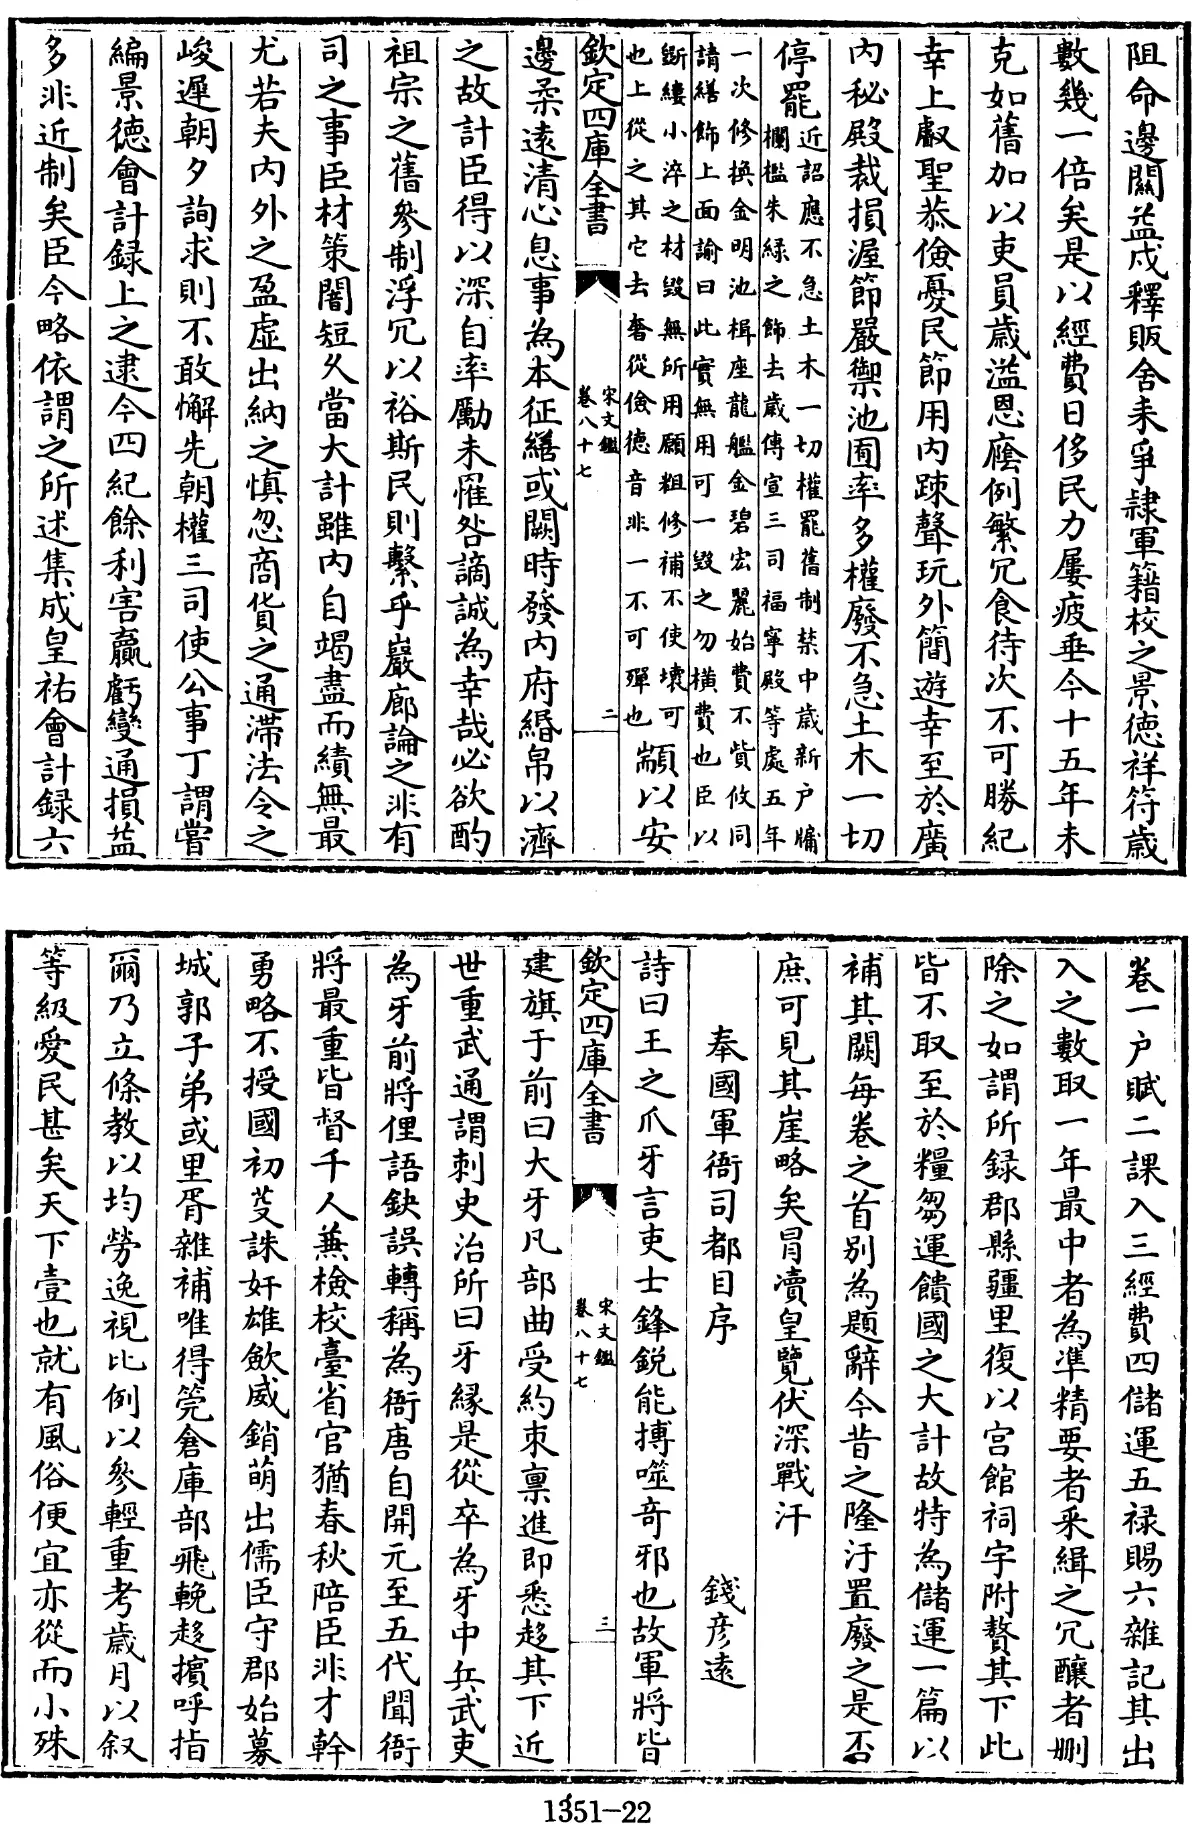 阻命邊關益戍釋販舍耒爭隷軍籍校之景德祥符歲
數幾一倍矣是以經費日侈民力屢疲垂今十五年未
克如舊加以吏員歲溢恩廕例繁冗食待次不可勝紀
幸上叡聖恭儉憂民節用内踈聲玩外簡遊幸至於廣
内秘殿裁損渥節嚴禦池囿率多權廢不急土木一切
停罷
近詔應不急土木一切權罷舊制禁中歲新户牖
欄檻朱緑之飾去歲傳宣三司福寧殿等處五年
一次修換金明池楫座龍艦金碧宏麗始費不貲攸同
請繕飾上面諭曰此實無用可一毁之勿横費也臣以
斷縷小淬之材毁無所用願粗修補不使壊可
也上從之其它去奢從儉德音非一不可殫也
顓以安
欽定四庫全書
宋文鑑
卷八十七
二
邊柔遠清心息事為本征繕或闕時發内府緡帛以濟
之故計臣得以深自率勵未罹咎謫誠為幸哉必欲酌
祖宗之舊參制浮冗以裕斯民則繫乎巖廊論之非有
司之事臣材策闇短久當大計雖内自竭盡而績無最
尤若夫内外之盈虚出納之慎忽商貨之通滯法令之
峻遲朝夕詢求則不敢懈先朝權三司使公事丁謂嘗
編景德會計録上之逮今四紀餘利害贏虧變通損益
多非近制矣臣今略依謂之所述集成皇祐會計録六
卷一户賦二課入三經費四儲運五禄賜六雜記其出
入之數取一年最中者為凖精要者釆緝之冗釀者刪
除之如謂所録郡縣疆里復以宫館祠宇附贅其下此
皆不取至於糧芻運饋國之大計故特為儲運一篇以
補其闕每卷之首别為題辭今昔之隆汙置廢之是否
庶可見其崖略矣冒瀆皇覽伏深戰汗
奉國軍衙司都目序
錢彦遠
詩曰王之爪牙言吏士鋒鋭能搏噬奇邪也故軍將皆
欽定四庫全書
宋文鑑
卷八十七
三
建旗于前曰大牙凡部曲受約束禀進即悉趍其下近
世重武通謂刺史治所曰牙縁是從卒為牙中兵武吏
為牙前將俚語鈌誤轉稱為衙唐自開元至五代聞衙
將最重皆督千人兼檢校臺省官猶春秋陪臣非才幹
勇略不授國初芟誅奸雄歛威銷萌出儒臣守郡始募
城郭子弟或里胥雜補唯得筦倉庫部飛輓趍擯呼指
爾乃立條教以均勞逸視比例以參輕重考歲月以叙
等級愛民甚矣天下壹也就有風俗便宜亦從而小殊
1351-22